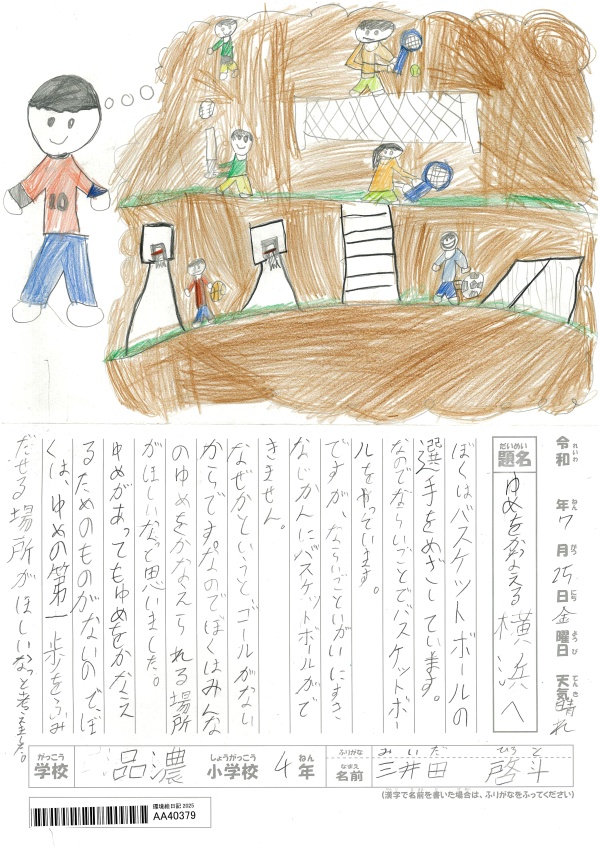 10
令和 年7月25日金曜日 天気晴れ
れいわ ねん がつ にち ようび てんき
だいめい
題名 ゆめをかなえる横浜へ
ぼくはバスケットボールの
選手をめざしています。
なのでならいごとでバスケットボー
ルをやっています。
ですが、ならいごといがいにすき
なじかんにバスケットボールがで
きません。
なぜかというと、ゴールがない
からです。なのでぼくはみんな
のゆめをかなえられる場所
がほしいなっと思いました。
ゆめがあってもゆめをかなえ
るためのものがないので、ぼ
くは、ゆめの第一歩をふみ
だせる場所がほしいなっと考えました。
がっこう しょうがっこう ねん ふりがな みいだ ひろと
学校 品濃 小学校 4年 なまえ 名前 三井田 啓斗
(漢字で名前を書いた場合は、ふりがなをふってください)
環境絵日記 2025
AA40379